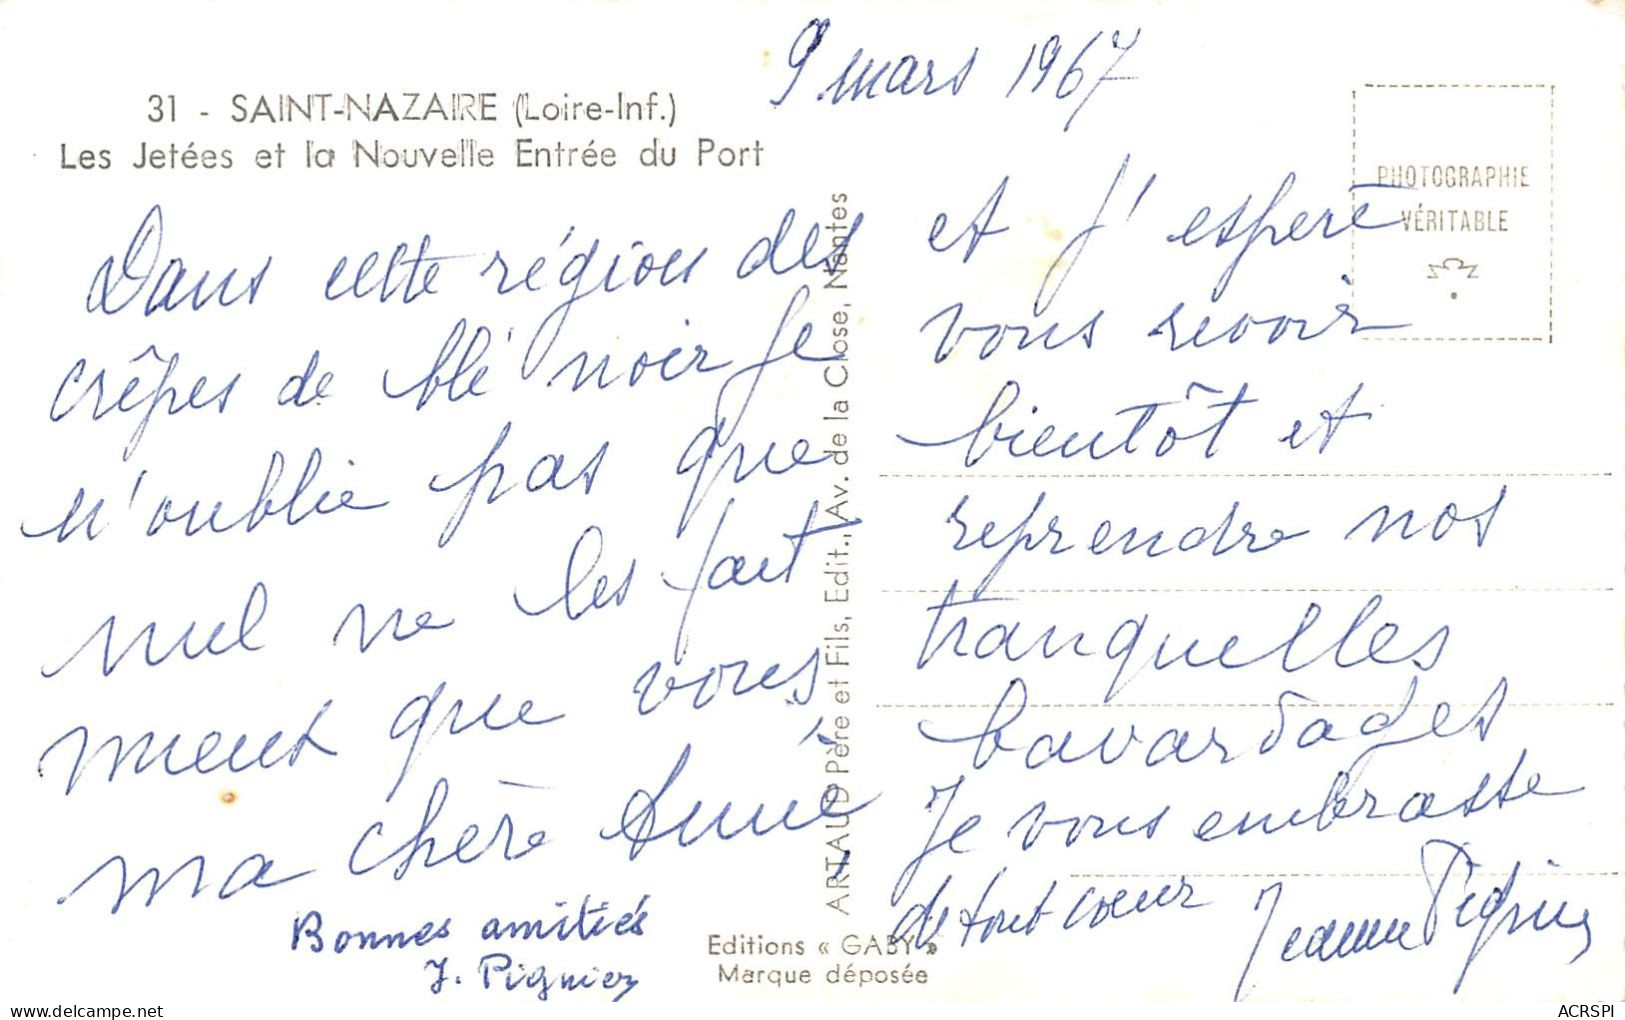 9 mars 1967
31 - SAINT-NAZAIRE (Loire-Inf.)
Les Jetées et la Nouvelle Entrée du Port
Dans cette région des
crêpes de blé noir je
n'oublie pas que
nul ne les fait
mieux que vous
ma chère
Bonnes amitiés
J. Pignier
ARTAUD Père et Fils, Edit., Av. de la Close, Nantes
Editions « GABY »
Marque déposée
PHOTOGRAPHIE
VÉRITABLE
et j'espère
vous revoir
bientôt et
reprendre nos
tranquelles
bavardages
Je vous embrasse
de tout coeur Jeanne Pignier
ACRSPI